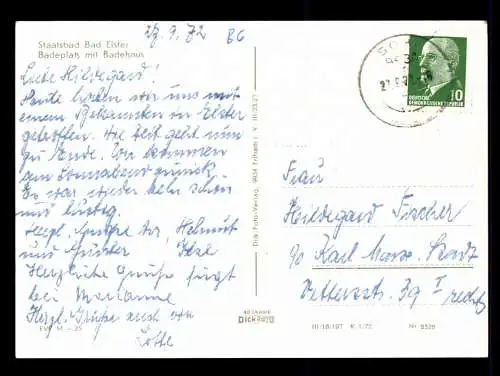 27.9.72
BG
Staatsbad Bad Elster
Badeplatz mit Badehaus
Liebe Hildegard!
Heute haben wir uns mit
einem Bekannten von Elster
getroffen. Die Zeit geht nun
zu Ende. Wir kommen
am Sonnabend zurück.
Es war wieder sehr schön
und lustig.
Herzl. Grüße Ihr, Helmut
und Günter
Herzliche Grüße fügt
bei Marianne
Herzl. Grüße auch von
Lotte
EVP M -,25
Dick Foto-Verlag, 9934 Erlbach i. V.
40 JAHRE
DICKFOTO
10
DEUTSCHE
DEMOKRATISCHE REPUBLIK
Frau
Hildegard Fischer
90 Karl-Marx-Stadt
Vettersstr. 39 I
rechts
III/18/197 K 1/72 Nr. 9526